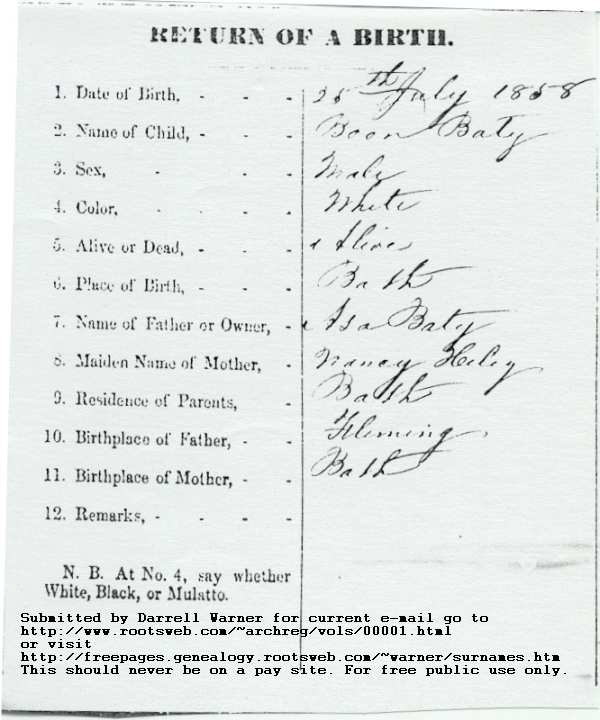 RETURN OF A BIRTH.
1. Date of Birth, - - - 25th July 1858
2. Name of Child, - - - Boon Baty
3. Sex, - - - Male
4. Color, - - - - White
5. Alive or Dead, - - - Alive
6. Place of Birth, - - - Bath
7. Name of Father or Owner, - Asa Baty
8. Maiden Name of Mother, - Nancy
9. Residence of Parents, - Bath
10. Birthplace of Father, - - Fleming
11. Birthplace of Mother, - - Bath
12. Remarks, - - - -
N. B. At No. 4, say whether
White, Black, or Mulatto.
Submitted by Darrell Warner for current e-mail go to
http://www.rootsweb.com/~archreg/vols/00001.html
or visit
http://freepages.genealogy.rootsweb.com/~warner/surnames.htm
This should never be on a pay site. For free public use only.